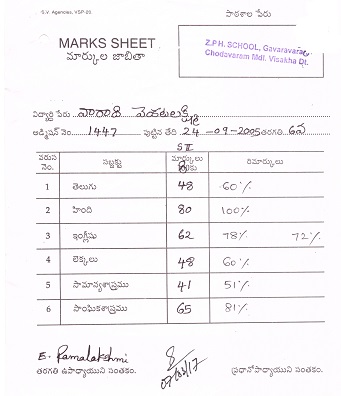 S.V. Agencies, VSP-20.
పాఠశాల పేరు
MARKS SHEET
మార్కుల జాబితా
Z.P.H. SCHOOL, Gavaravaram
Chodavaram Mdl. Visakha Dt.
విద్యార్థి పేరు
అడ్మిషన్ నెం. 1447 పుట్టిన తేది 24-09-2005 తరగతి 6వ
వరుస నెం. సబ్జక్టు మార్కులు రిమార్కులు
1 తెలుగు 48 60%
2 హింది 80 100%
3 ఇంగ్లీషు 62 78% 72%
4 లెక్కలు 48 60%
5 సామాన్యశాస్త్రము 41 51%
6 సాంఘికశాస్త్రము 65 81%
E. Ramalakshmi
07/03/17
తరగతి ఉపాధ్యాయుని సంతకం. ప్రధానోపాధ్యాయుని సంతకం.